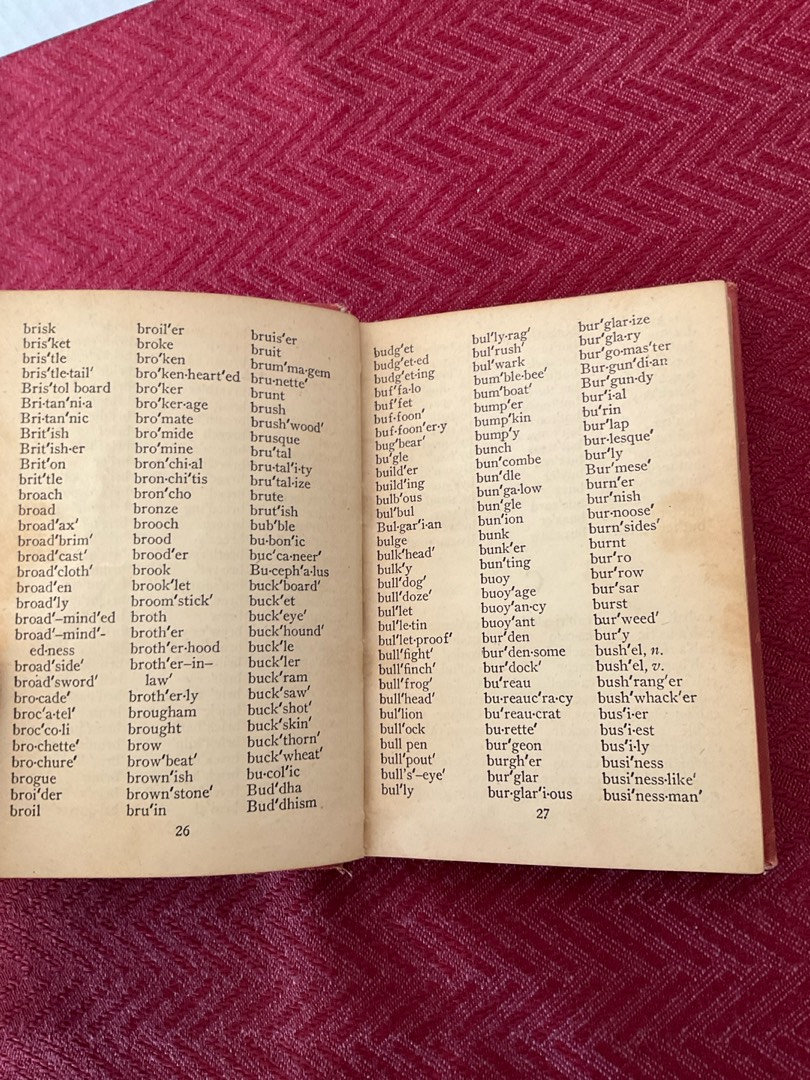 brisk
bris′ket
bris′tle
bris′tle·tail′
Bris′tol board
Bri·tan′ni·a
Bri·tan′nic
Brit′ish
Brit′ish·er
Brit′on
brit′tle
broach
broad
broad′ax′
broad′brim′
broad′cast′
broad′cloth′
broad′en
broad′ly
broad′–mind′ed
broad′–mind′-
ed·ness
broad′side′
broad′sword′
bro·cade′
broc′a·tel′
broc′co·li
bro·chette′
bro·chure′
brogue
broi′der
broil
broil′er
broke
bro′ken
bro′ken·heart′ed
bro′ker
bro′ker·age
bro′mate
bro′mide
bro′mine
bron′chi·al
bron·chi′tis
bron′cho
bronze
brooch
brood
brood′er
brook
brook′let
broom′stick′
broth
broth′er
broth′er·hood
broth′er–in–
law′
broth′er·ly
brougham
brought
brow
brow′beat′
brown′ish
brown′stone′
bru′in
bruis′er
bruit
brum′ma·gem
bru·nette′
brunt
brush
brush′wood′
brusque
bru′tal
bru·tal′i·ty
bru′tal·ize
brute
brut′ish
bub′ble
bu·bon′ic
buc′ca·neer′
Bu·ceph′a·lus
buck′board′
buck′et
buck′eye′
buck′hound′
buck′le
buck′ler
buck′ram
buck′saw′
buck′shot′
buck′skin′
buck′thorn′
buck′wheat′
bu·col′ic
Bud′dha
Bud′dhism
26
budg′et
budg′et·ed
budg′et·ing
buf′fa·lo
buf′fet
buf·foon′
buf·foon′er·y
bug′bear′
bu′gle
build′er
build′ing
bulb′ous
bul′bul
Bul·gar′i·an
bulge
bulk′head′
bulk′y
bull′dog′
bull′doze′
bul′let
bul′le·tin
bul′let·proof′
bull′fight′
bull′finch′
bull′frog′
bull′head′
bul′lion
bull′ock
bull pen
bull′pout′
bull's′–eye′
bul′ly
bul′ly·rag′
bul′rush′
bul′wark
bum′ble·bee′
bum′boat′
bump′er
bump′kin
bump′y
bunch
bun′combe
bun′dle
bun′ga·low
bun′gle
bun′ion
bunk
bunk′er
bun′ting
buoy
buoy′age
buoy′an·cy
buoy′ant
bur′den
bur′den·some
bur′dock′
bu′reau
bu·reauc′ra·cy
bu′reau·crat
bu·rette′
bur′geon
burgh′er
bur′glar
bur·glar′i·ous
bur′glar·ize
bur′gla·ry
bur′go·mas′ter
Bur·gun′di·an
Bur′gun·dy
bur′i·al
bu′rin
bur′lap
bur·lesque′
bur′ly
Bur′mese′
burn′er
bur′nish
bur·noose′
burn′sides′
burnt
bur′ro
bur′row
bur′sar
burst
bur′weed′
bur′y
bush′el, n.
bush′el, v.
bush′rang′er
bush′whack′er
bus′i·er
bus′i·est
bus′i·ly
busi′ness
busi′ness·like′
busi′ness·man′
27